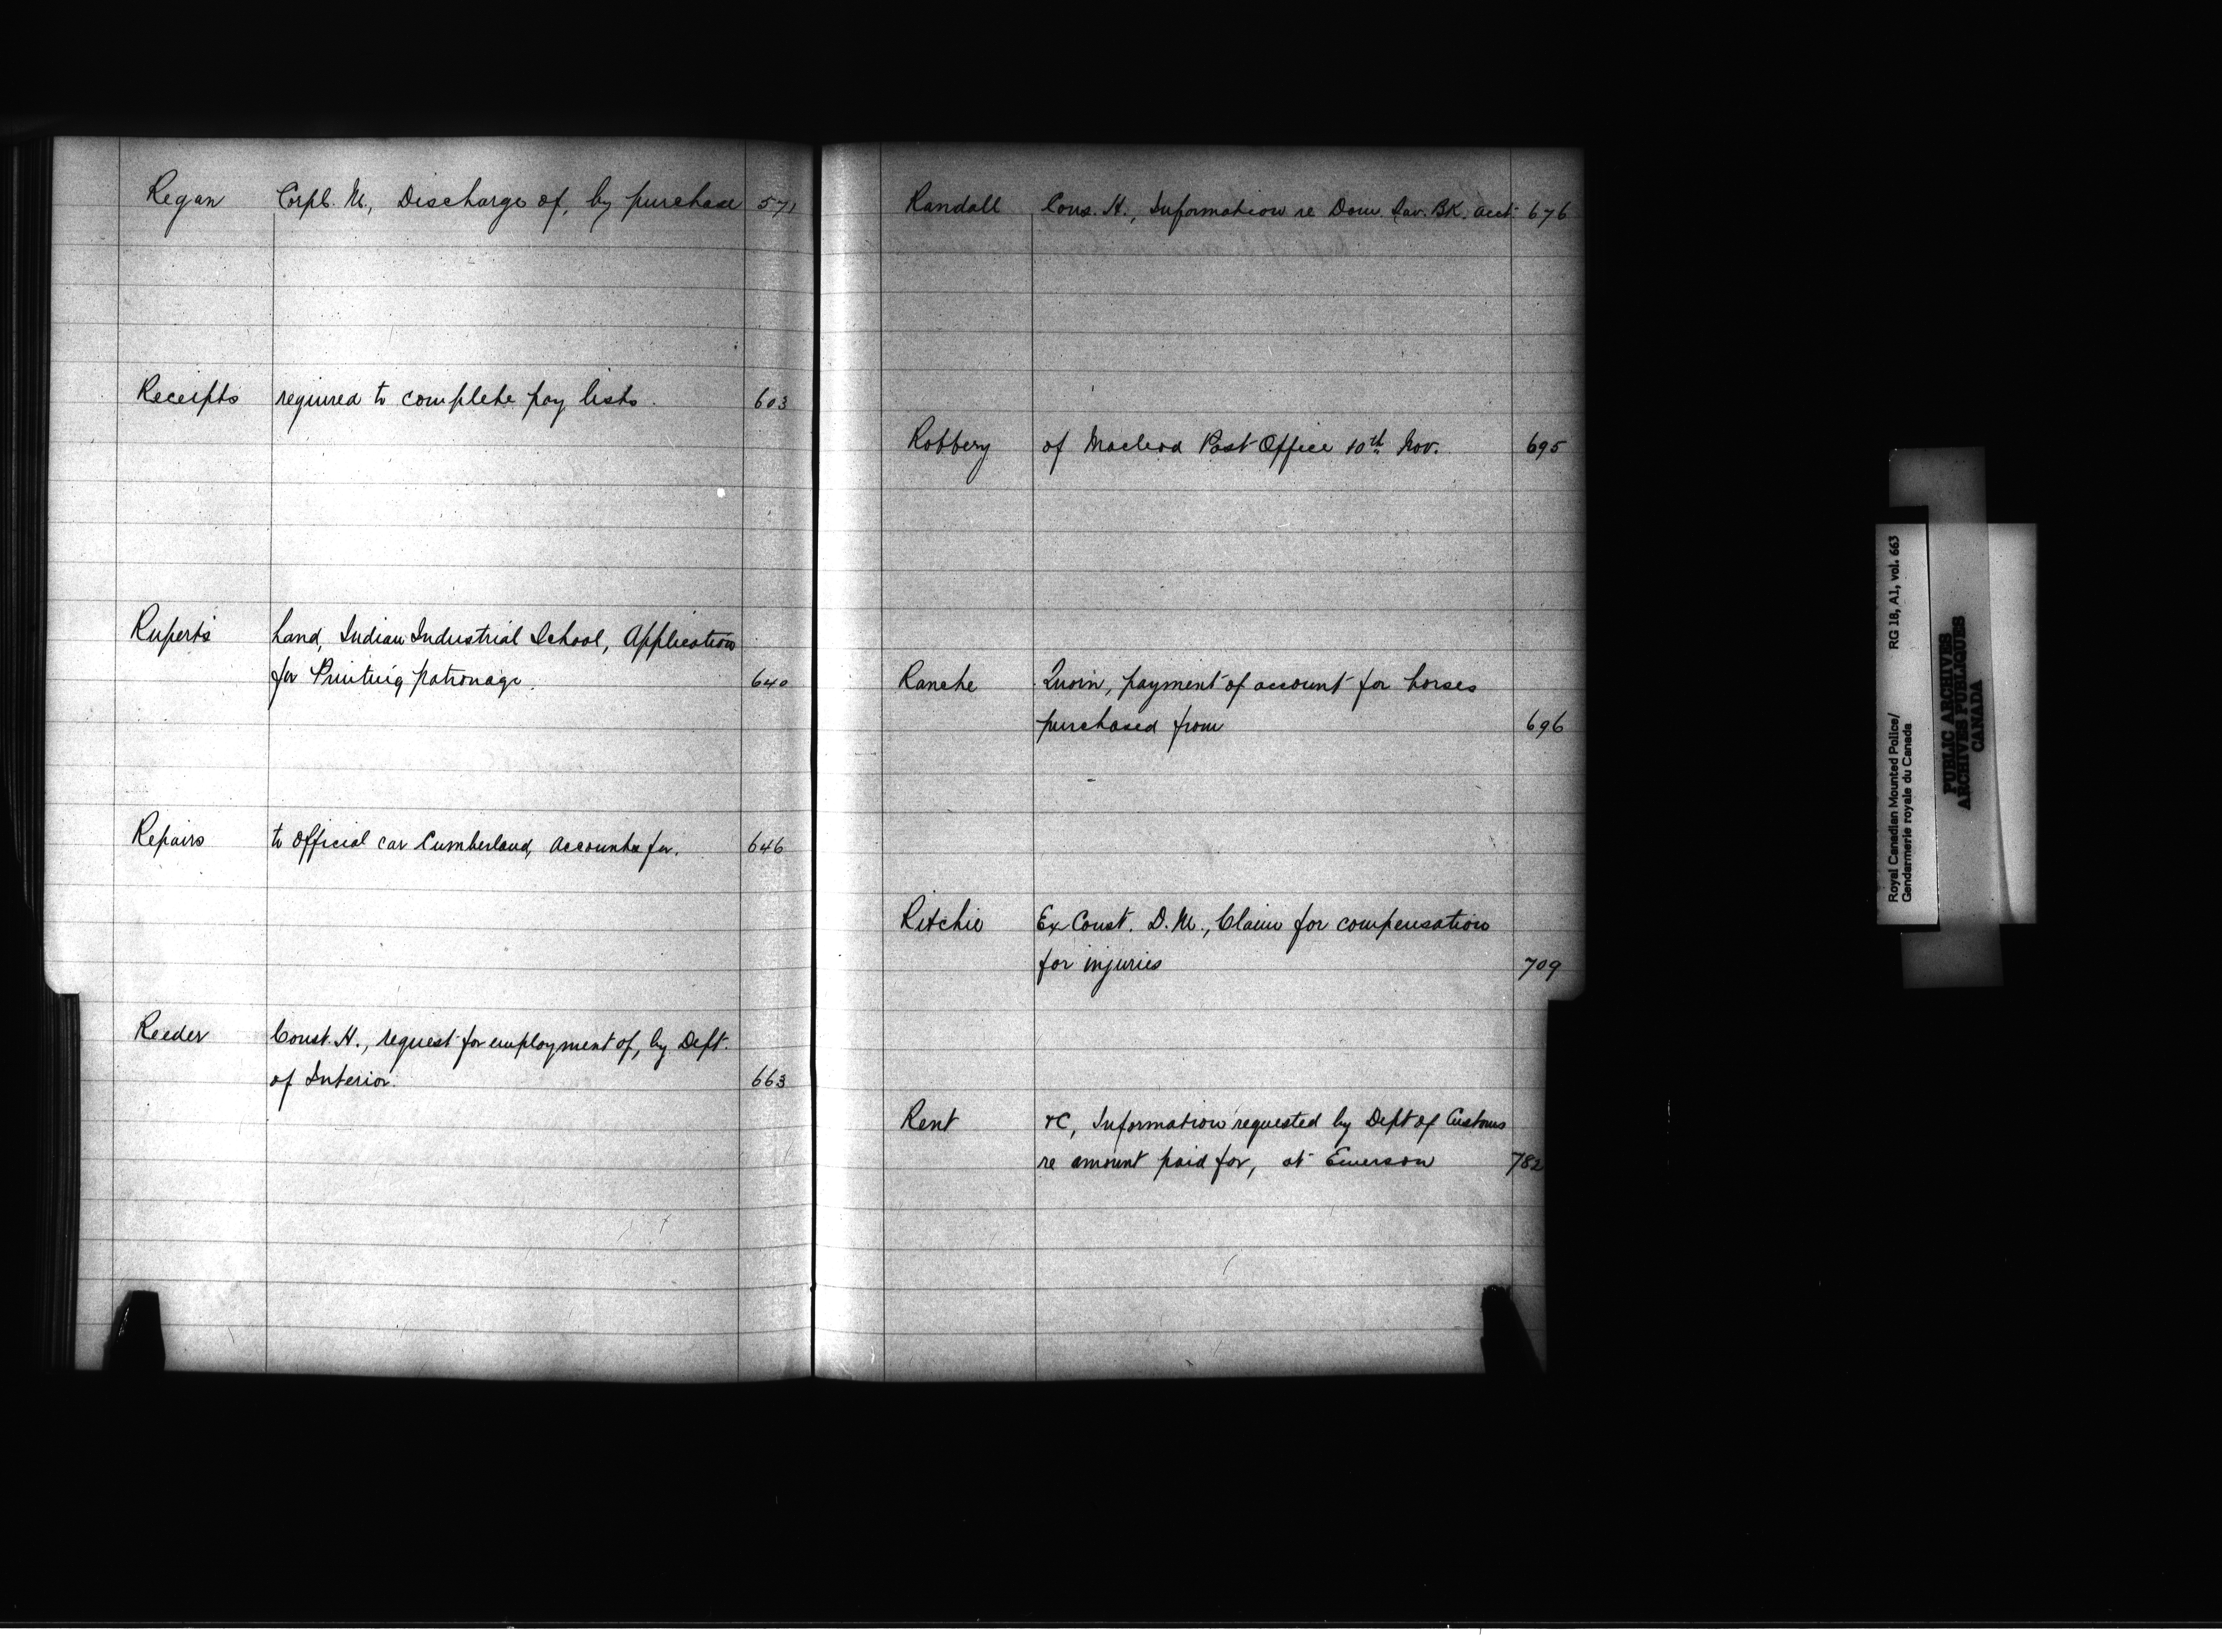 Regan Corpl. M., Discharge of, by purchase 571
Receipts required to complete pay lists. 603
Ruperts Land, Indian Industrial School, Application
for Printing patronage. 640
Repairs to Official car Cumberland, Accounts for. 646
Reeder Const. H., request for employment of, by Dept.
of Interior. 663
Randall Cons. H., Information re Dom. Sav. BK. acct. 676
Robbery of Macleod Post Office 10th Nov. 695
Ranche Quorn, payment of account for horses
purchased from 696
Ritchie Ex Const. D. M., Claim for compensation
for injuries 709
Rent &C, Information requested by Dept of Customs
re amount paid for, at Emerson 782
Royal Canadian Mounted Police/ RG 18, A1, vol. 663
Gendarmerie royale du Canada
PUBLIC ARCHIVES
ARCHIVES PUBLIQUES
CANADA